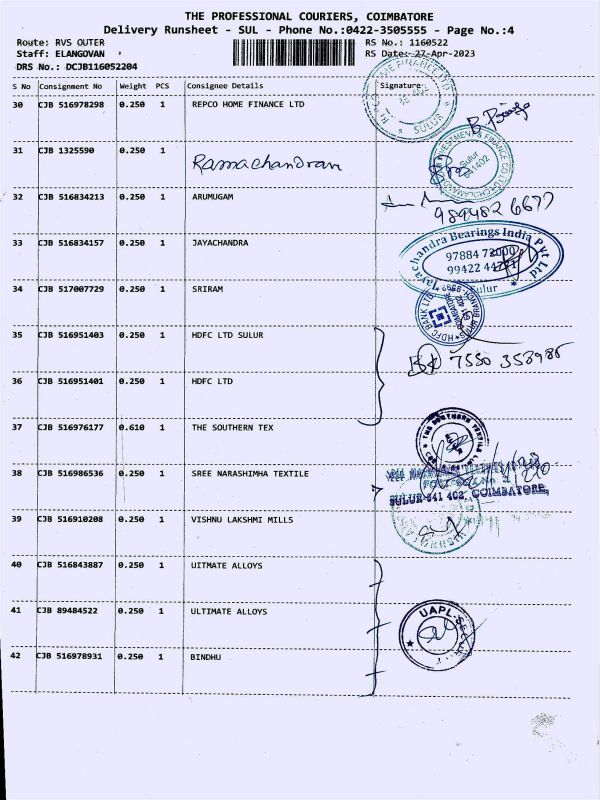 THE PROFESSIONAL COURIERS, COIMBATORE
Delivery Runsheet - SUL - Phone No.:0422-3505555 - Page No.:4
Route: RVS OUTER RS No.: 1160522
Staff: ELANGOVAN RS Date: 27-Apr-2023
DRS No.: DCJB116052204
S No Consignment No Weight PCS Consignee Details Signature
30 CJB 516978298 0.250 1 REPCO HOME FINANCE LTD
SULUR
31 CJB 1325590 0.250 1 Ramachandran
Sulur
32 CJB 516834213 0.250 1 ARUMUGAM
9894826677
33 CJB 516834157 0.250 1 JAYACHANDRA
Jayachandra Bearings India Pvt Ltd
97884 72000
Sulur
34 CJB 517007729 0.250 1 SRIRAM
HDFC BANK LTD
35 CJB 516951403 0.250 1 HDFC LTD SULUR
7550 353986
36 CJB 516951401 0.250 1 HDFC LTD
37 CJB 516976177 0.610 1 THE SOUTHERN TEX
THE SOUTHERN TEXTILE
38 CJB 516986536 0.250 1 SREE NARASHIMHA TEXTILE
SULUR-641 402, COIMBATORE,
39 CJB 516910208 0.250 1 VISHNU LAKSHMI MILLS
40 CJB 516843887 0.250 1 UITMATE ALLOYS
41 CJB 89484522 0.250 1 ULTIMATE ALLOYS
UAPL-SECUR
42 CJB 516978931 0.250 1 BINDHU